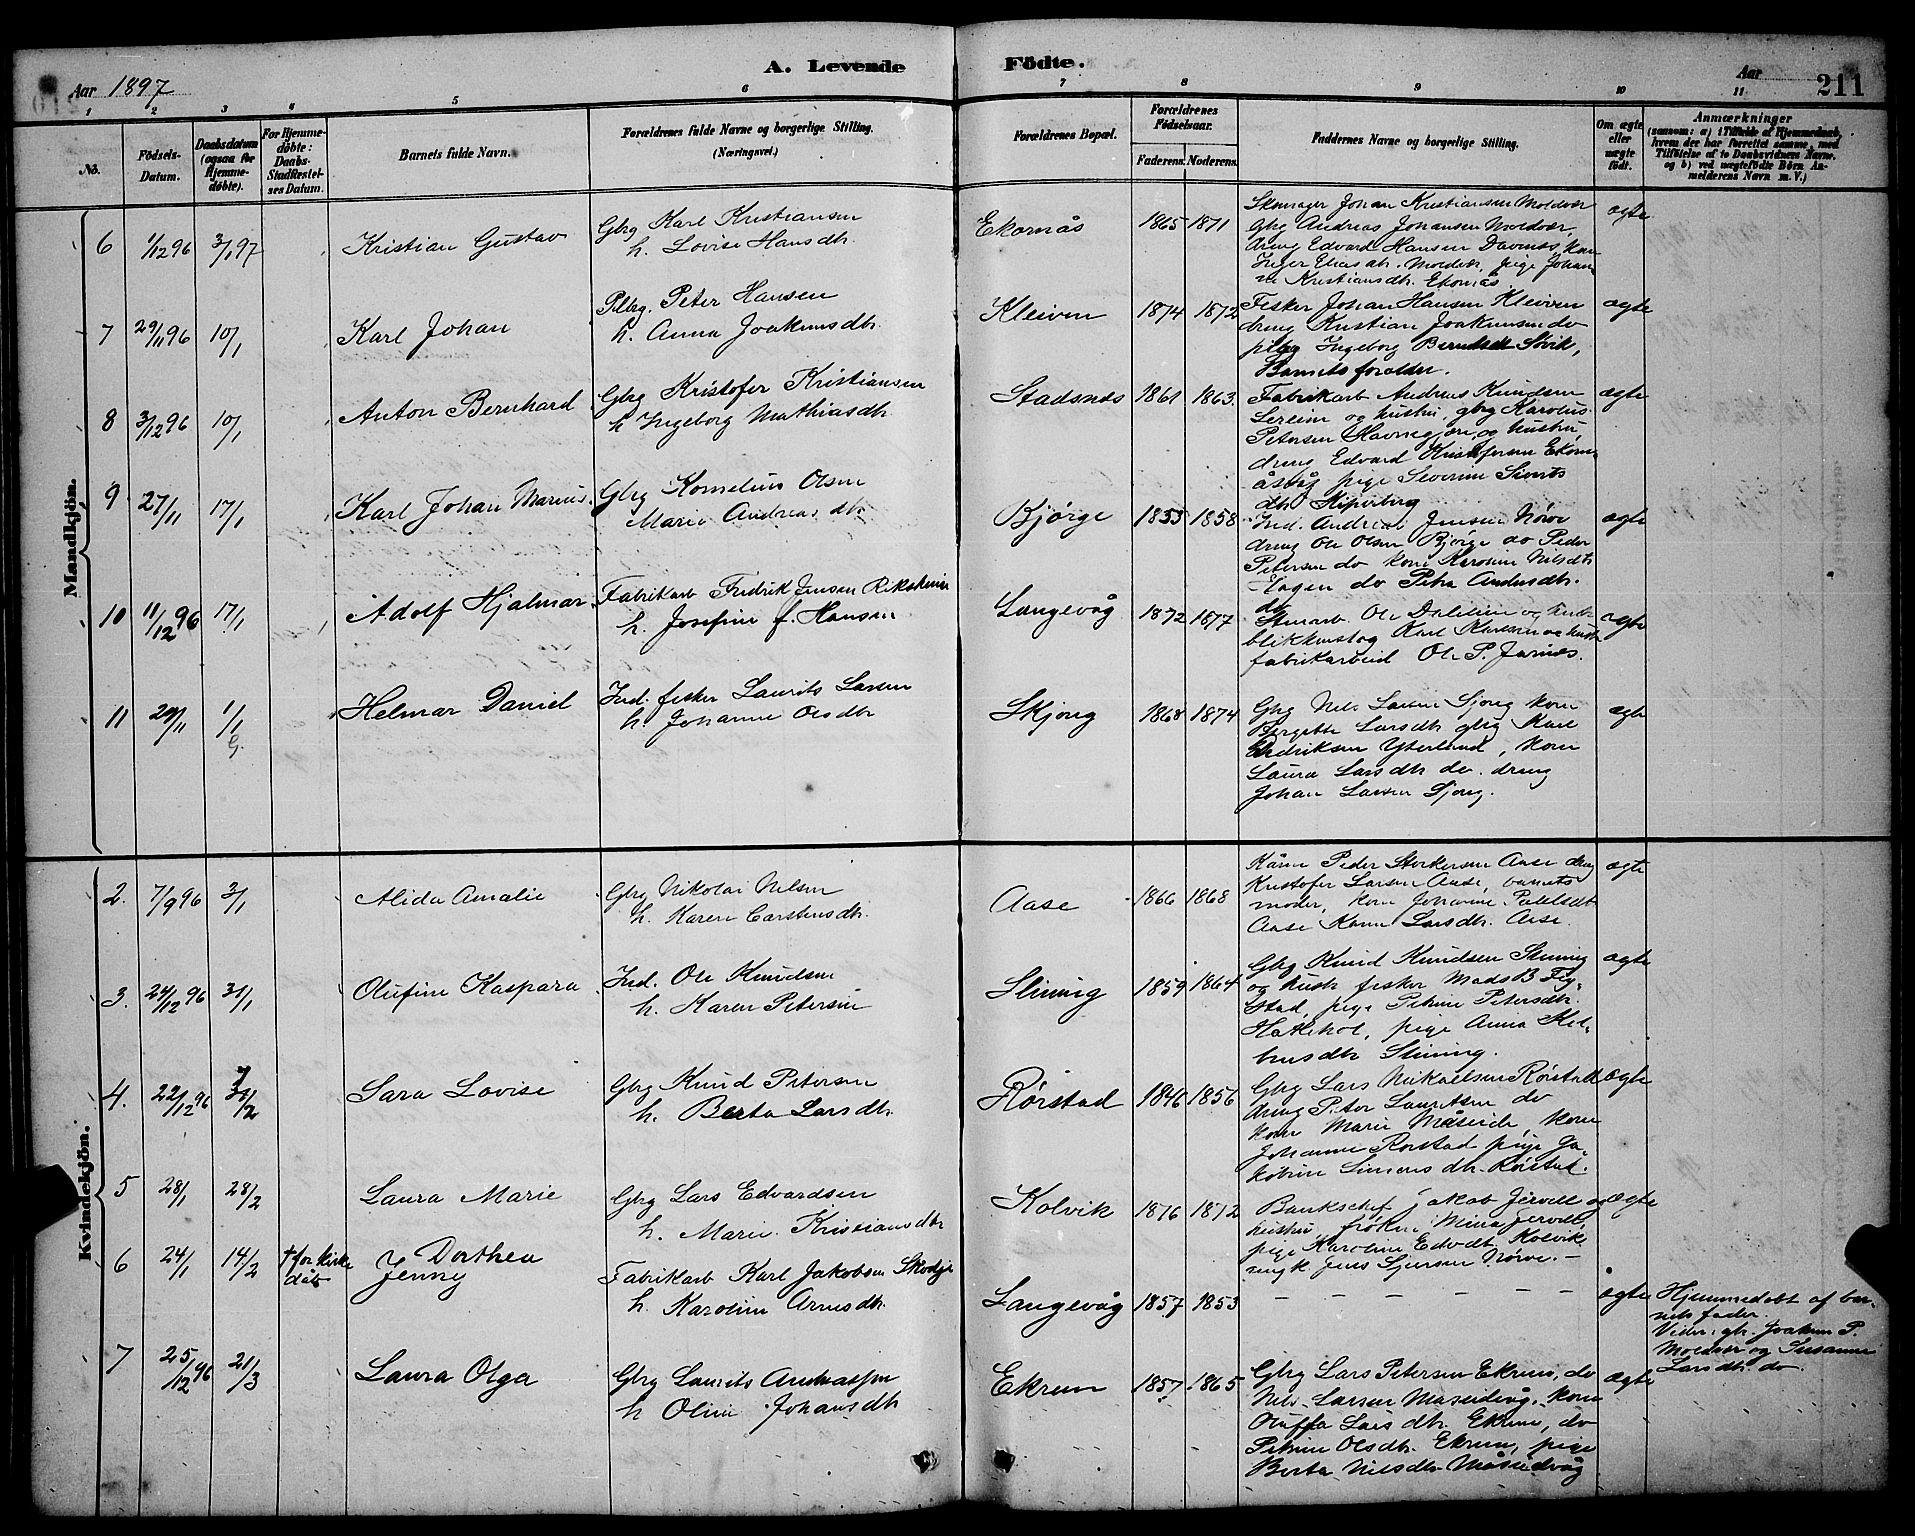 Aar 1897
A. Levende Födte.
Aar
211
1 2 3 4 5 6 7 8 9 10 11
No.
Födsels-
Datum.
Daabsdatum
(ogsaa for
Hjemme-
döbte).
For Hjemme-
döbte:
Daabs-
Stadfæstel-
ses Datum.
Barnets fulde Navn.
Forældrenes fulde Navne og borgerlige Stilling.
(Næringsvei.)
Forældrenes Bopæl.
Forældrenes
Födselsaar.
Faderens. Moderens.
Faddernes Navne og borgerlige Stilling.
Om ægte
eller
uægte
födt.
Anmærkninger
(saasom: a) i Tilfælde af Hjemmedaab,
hvem der har forrettet samme, med
Tilföielse af to Daabsvidners Navne.
og b) ved uægtefödte Börn An-
melderens Navn m. V.)
Mandkjön.
6 1/12 96 3/1 97 Kristian Gustav
Gbrg Karl Kristiansen
h. Lovise Hansdtr
Ekornås 1865 1871
Johan Kristiansen Moldvær
Gbrg Andreas Johansen Moldvær,
dreng Edvard Hansen
Inger Eliasdtr. Moldvær, pige Johan
ne Kristiansdtr. Ekornås
ægte
7 29/11 96 10/1 Karl Johan
Plbrg. Peter Hansen
h. Anna Joakimsdtr.
Kleiven 1874 1872
Fisker Johan Hansen Kleiven
dreng Kristian Joakimsen do
pige Ingeborg Berntsdtr Søvik,
Barnets forældre.
ægte
8 3/12 96 10/1 Anton Bernhard
Gbrg Kristofer Kristiansen
h Ingeborg Mathiasdtr
Stadsnes 1861 1863.
Fabrikarb Andreas Knudsen
og hustru, gbrg Karolus
Petersen og hustru,
dreng Edvard Kristofersen Ekorn
åsvåg pige Severine Sivets
dtr
ægte
9 27/11 17/1 Karl Johan Marius
Gbrg Kornelius Olsen
Marie Andreasdtr
Bjørge 1855 1858
Ind. Andreas Jensen Nørve
dreng Ole Olsen Bjørge do Peder
Petersen do kone Karoline Nilsdtr
Hagen do Petra Andersdtr.
do
ægte
10 11/12 96 17/1 Adolf Hjalmar
Fabrikarb Fredrik Jensen
h. Josefine f. Hansen
Langevåg 1872 1877
Stenarb. Ole
Karl Karlsen og hustr
fabrikarbeid Ole P.
ægte
11 29/11 1/1 G. Helmar Daniel
Ind. fisker Laurits Larsen
h Johanne Olsdtr
Skjong 1868 1874
Gbrg Nils Larsen Sjong kone
Bergitte Larsdtr gbrg Karl
Endriksen Ytterland, kone
Laura Larsdtr do. dreng
Johan Larsen Sjong.
ægte
Kvindekjön.
2. 7/9 96 3/1 Alida Amalie
Gbrg Nikolai Nilsen
h. Karen Carstensdtr.
Aase 1866 1868
Peder Storkersen Aase dreng
Kristofer Larsen Aase, barnets
moder, kone Johanne
Aase Larsdtr. Aase
ægte
3. 24/12 96 31/1 Olufine Kaspara
Ind. Ole Knudsen
h. Karen Petersen
Slinning 1859 1864
Gbrg Knud Knudsen Slinning
og hust fisker Mads B
stad, pige Petrine Petersdtr.
pige Anna Mel-
husdtr Slinning.
ægte
4. 22/12 96 7/2 Sara Lovise
Gbrg Knud Petersen
h. Berta Larsdtr.
Rørstad 1846 1856
Gbrg Lars Mikaelsen Rørstad
dreng Peter Lauritsen do
kone Marie Måseide, kone
Johanne Rørstad pige Ja-
kobine Simonsdtr. Rørstad.
ægte
5 28/1 28/2 Laura Marie
Gbrg Lars Edvardsen
h. Marie Kristiansdtr
Kolvik 1876 1872
Bankchef Jakob Jervell og
hustru, frøken Mina Jervell,
pige Karoline Edvdt. Kolvik
ungk. Jens Nørve. –
ægte
6 24/1 14/2 † før kirke
dåb
Dorthea
Jenny
Fabrikarb Karl Jakobsen Skodje
h. Karoline Arnesdtr.
Langevåg 1857 1853
– – – – – –
ægte
Hjemmedøbt af bar-
nets fader.
Vidner: gbr. Joakim P.
Moldvær og Susanne
Larsdtr. do.
7 25/12 96 21/3 Laura Olga
Gbrg Laurits Andreassen
h Oline Johansdtr
Ekrem 1857 1865
Gbrg Lars Petersen Ekrem, do
Nils Larsen Måseidvåg, kone
Oluffa Larsdtr Ekrem, do
Petrine Olsdtr. Ekrem, pige
Berta Nilsdtr Måseidvåg
ægte